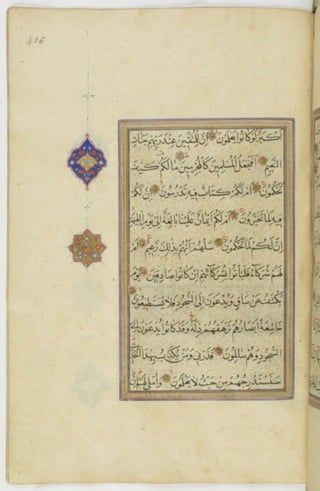 اكبر لو كانوا يعلمون ان للمتقين عند ربهم جنات
النعيم افنجعل المسلمين كالمجرمين ما لكم كيف
تحكمون ام لكم كتاب فيه تدرسون ان لكم
فيه لما تخيرون ام لكم ايمان علينا بالغة الى يوم القيمة
ان لكم لما تحكمون سلهم ايهم بذلك زعيم ام
لهم شركاء فليأتوا بشركائهم ان كانوا صادقين يوم
يكشف عن ساق ويدعون الى السجود فلا يستطيعون
خاشعة ابصارهم ترهقهم ذلة وقد كانوا يدعون الى
السجود وهم سالمون فذرني ومن يكذب بهذا الحديث
سنستدرجهم من حيث لا يعلمون واملي لهم ان